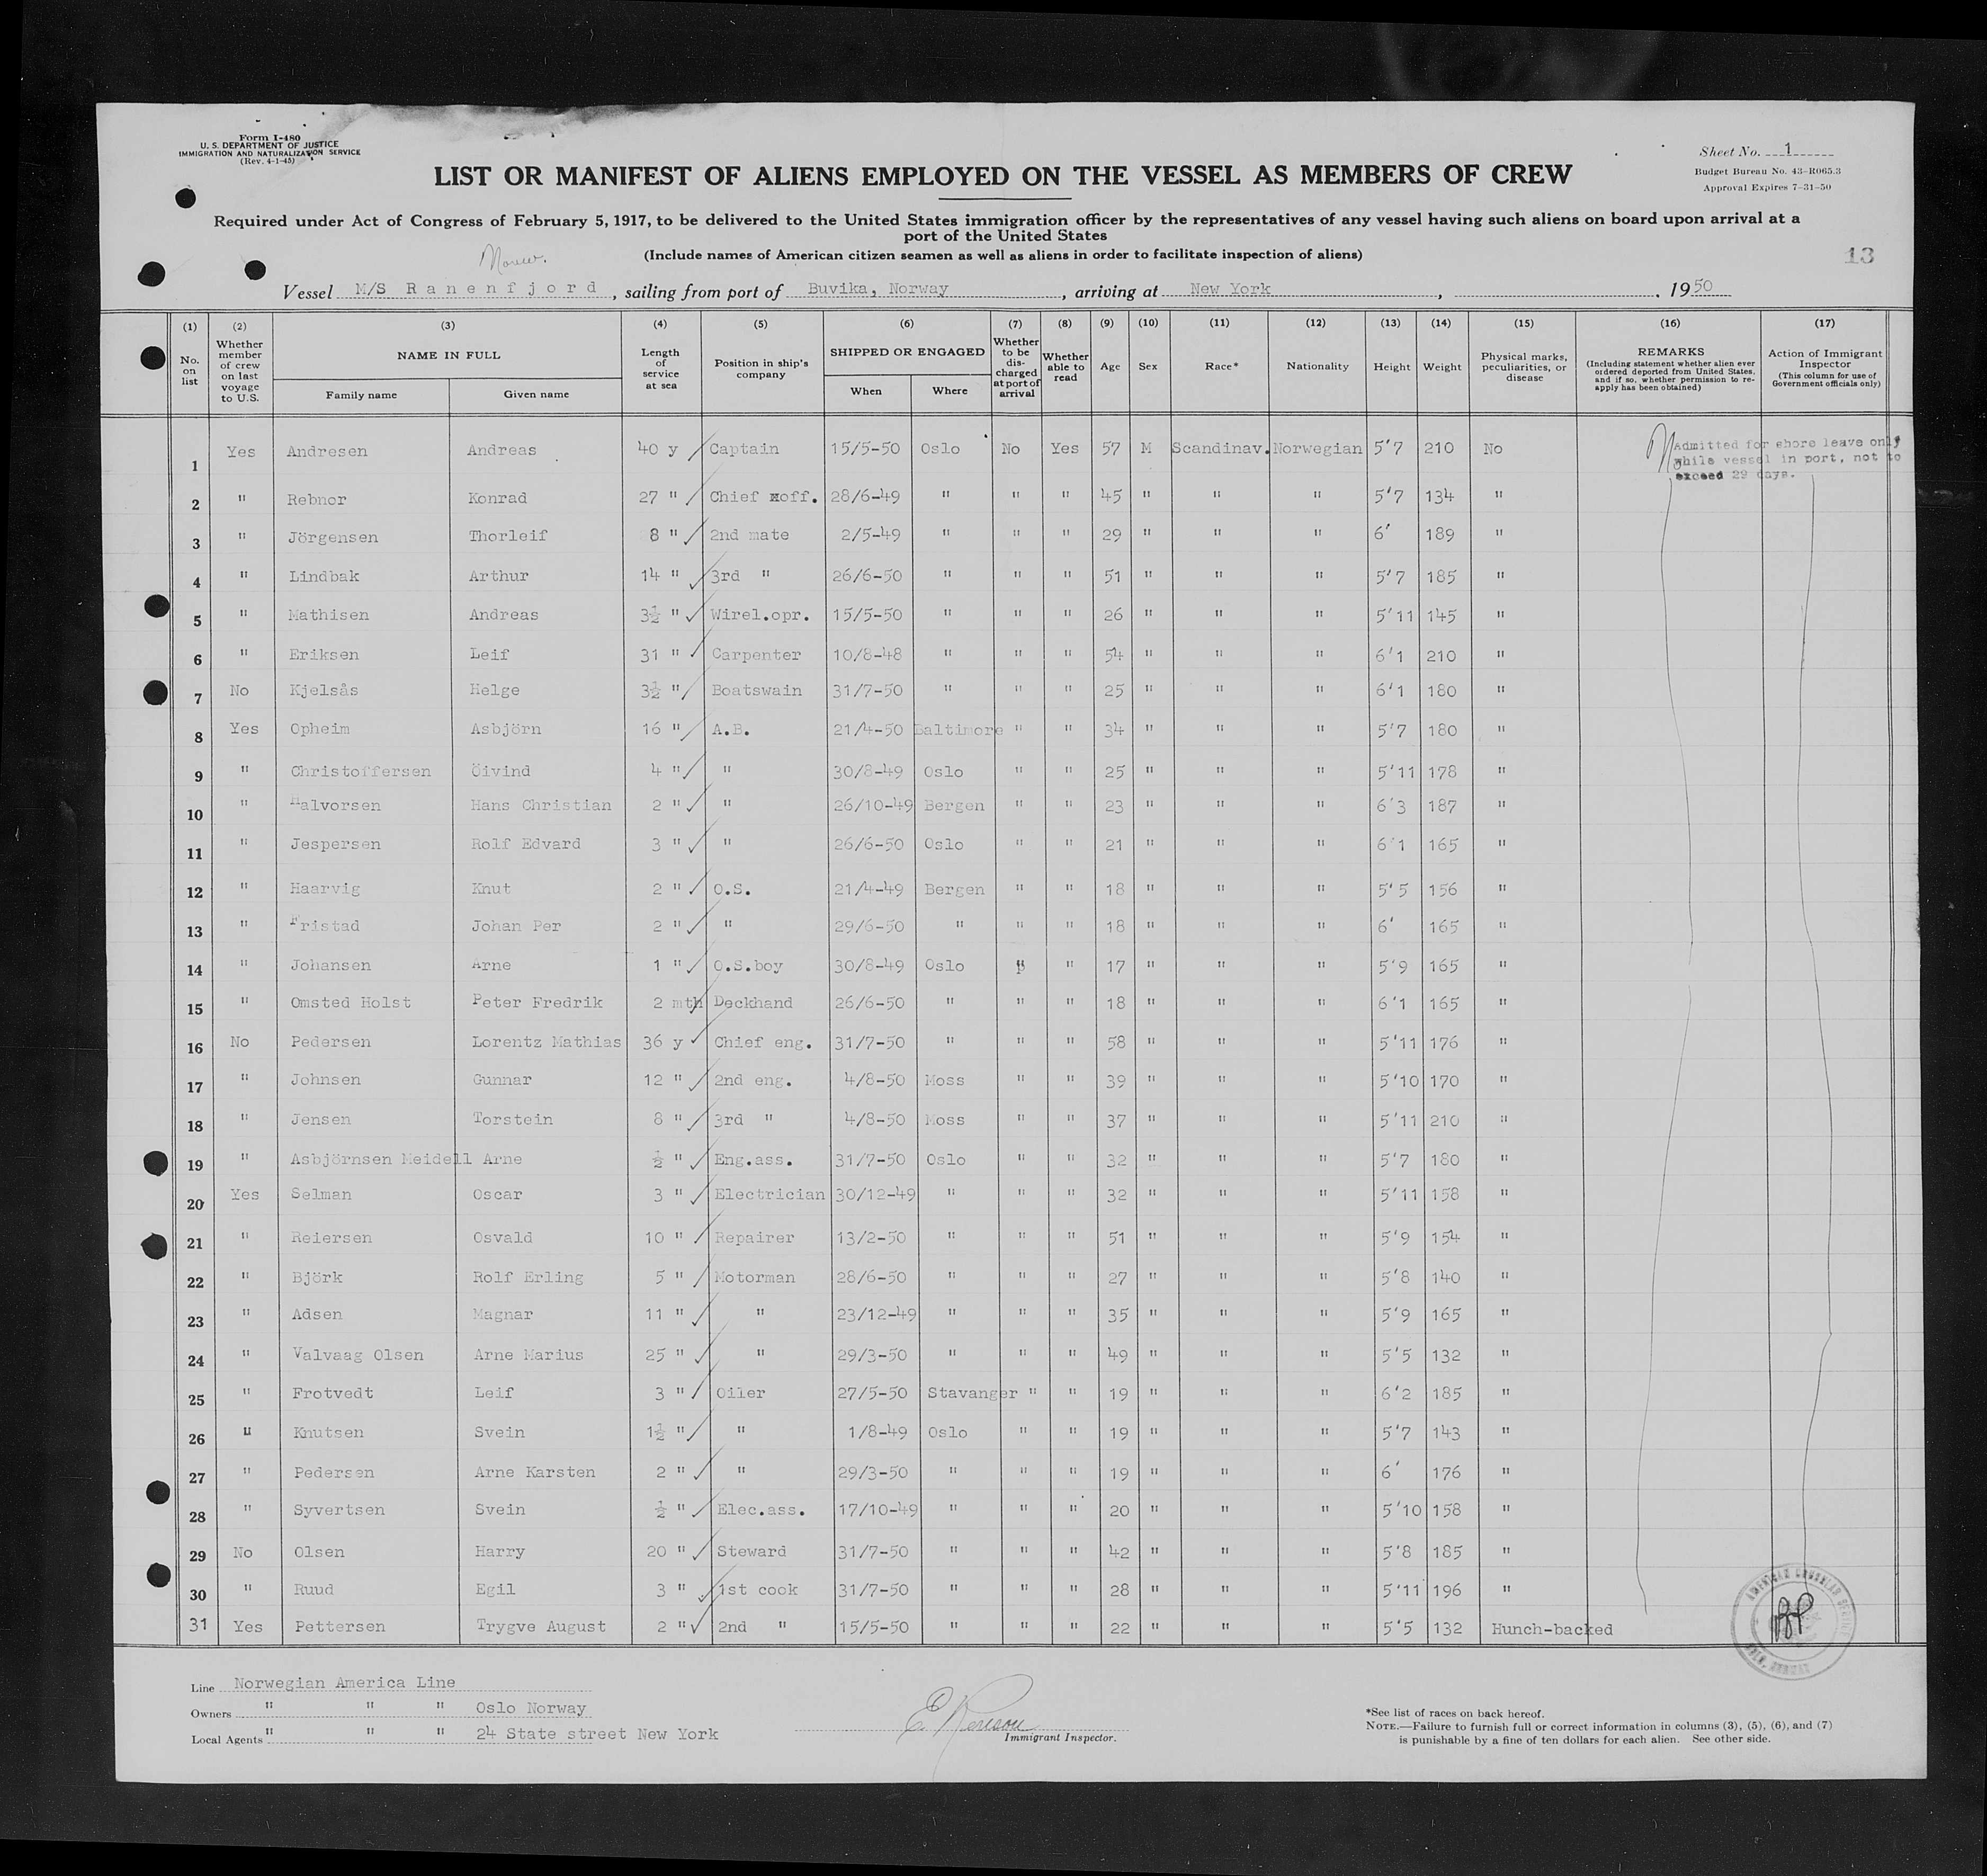 Form I-480
U. S. DEPARTMENT OF JUSTICE
IMMIGRATION AND NATURALIZATION SERVICE
(Rev. 4-1-45)
Sheet No. 1
Budget Bureau No. 43-R065.3
Approval Expires 7-31-50
LIST OR MANIFEST OF ALIENS EMPLOYED ON THE VESSEL AS MEMBERS OF CREW
Required under Act of Congress of February 5, 1917, to be delivered to the United States immigration officer by the representatives of any vessel having such aliens on board upon arrival at a
port of the United States
(Include names of American citizen seamen as well as aliens in order to facilitate inspection of aliens)
13
Vessel M/S Ranenfjord, sailing from port of Buvika, Norway, arriving at New York, , 1950
(1) (2) (3) (4) (5) (6) (7) (8) (9) (10) (11) (12) (13) (14) (15) (16) (17)
No. on list
Whether member of crew on last voyage to U.S.
NAME IN FULL
Family name
Given name
Length of service at sea
Position in ship's company
SHIPPED OR ENGAGED
When
Where
Whether to be discharged at port of arrival
Whether able to read
Age
Sex
Race*
Nationality
Height
Weight
Physical marks, peculiarities, or disease
REMARKS
(Including statement whether alien ever ordered deported from United States, and if so, whether permission to re-apply has been obtained)
Action of Immigrant Inspector
(This column for use of Government officials only)
1 Yes Andresen Andreas 40 y Captain 15/5-50 Oslo No Yes 57 M Scandinav. Norwegian 5'7 210 No
Admitted for shore leave only
while vessel in port, not to
exceed 29 days.
2 " Rebnor Konrad 27 " Chief xoff. 28/6-49 " " " 45 " " " 5'7 134 "
3 " Jörgensen Thorleif 8 " 2nd mate 2/5-49 " " " 29 " " " 6' 189 "
4 " Lindbak Arthur 14 " 3rd " 26/6-50 " " " 51 " " " 5'7 185 "
5 " Mathisen Andreas 3½ " Wirel.opr. 15/5-50 " " " 26 " " " 5'11 145 "
6 " Eriksen Leif 31 " Carpenter 10/8-48 " " " 54 " " " 6'1 210 "
7 No Kjelsås Helge 3½ " Boatswain 31/7-50 " " " 25 " " " 6'1 180 "
8 Yes Opheim Asbjörn 16 " A.B. 21/4-50 Baltimore " " 34 " " " 5'7 180 "
9 " Christoffersen Öivind 4 " " 30/8-49 Oslo " " 25 " " " 5'11 178 "
10 " Halvorsen Hans Christian 2 " " 26/10-49 Bergen " " 23 " " " 6'3 187 "
11 " Jespersen Rolf Edvard 3 " " 26/6-50 Oslo " " 21 " " " 6'1 165 "
12 " Haarvig Knut 2 " O.S. 21/4-49 Bergen " " 18 " " " 5'5 156 "
13 " Fristad Johan Per 2 " " 29/6-50 " " " 18 " " " 6' 165 "
14 " Johansen Arne 1 " O.S.boy 30/8-49 Oslo " " 17 " " " 5'9 165 "
15 " Omsted Holst Peter Fredrik 2 mth Deckhand 26/6-50 " " " 18 " " " 6'1 165 "
16 No Pedersen Lorentz Mathias 36 y Chief eng. 31/7-50 " " " 58 " " " 5'11 176 "
17 " Johnsen Gunnar 12 " 2nd eng. 4/8-50 Moss " " 39 " " " 5'10 170 "
18 " Jensen Torstein 8 " 3rd " 4/8-50 Moss " " 37 " " " 5'11 210 "
19 " Asbjörnsen Meidell Arne ½ " Eng.ass. 31/7-50 Oslo " " 32 " " " 5'7 180 "
20 Yes Selman Oscar 3 " Electrician 30/12-49 " " " 32 " " " 5'11 158 "
21 " Reiersen Osvald 10 " Repairer 13/2-50 " " " 51 " " " 5'9 154 "
22 " Björk Rolf Erling 5 " Motorman 28/6-50 " " " 27 " " " 5'8 140 "
23 " Adsen Magnar 11 " " 23/12-49 " " " 35 " " " 5'9 165 "
24 " Valvaag Olsen Arne Marius 25 " " 29/3-50 " " " 49 " " " 5'5 132 "
25 " Frotvedt Leif 3 " Oiler 27/5-50 Stavanger " " 19 " " " 6'2 185 "
26 " Knutsen Svein 1½ " " 1/8-49 Oslo " " 19 " " " 5'7 143 "
27 " Pedersen Arne Karsten 2 " " 29/3-50 " " " 19 " " " 6' 176 "
28 " Syvertsen Svein ½ " Elec.ass. 17/10-49 " " " 20 " " " 5'10 158 "
29 No Olsen Harry 20 " Steward 31/7-50 " " " 42 " " " 5'8 185 "
30 " Ruud Egil 3 " 1st cook 31/7-50 " " " 28 " " " 5'11 196 "
31 Yes Pettersen Trygve August 2 " 2nd " 15/5-50 " " " 22 " " " 5'5 132 Hunch-backed
AMERICAN CONSULAR SERVICE
OSLO, NORWAY
Line Norwegian America Line
Owners " " " Oslo Norway
Local Agents " " " 24 State street New York
Immigrant Inspector.
*See list of races on back hereof.
NOTE.—Failure to furnish full or correct information in columns (3), (5), (6), and (7)
is punishable by a fine of ten dollars for each alien. See other side.